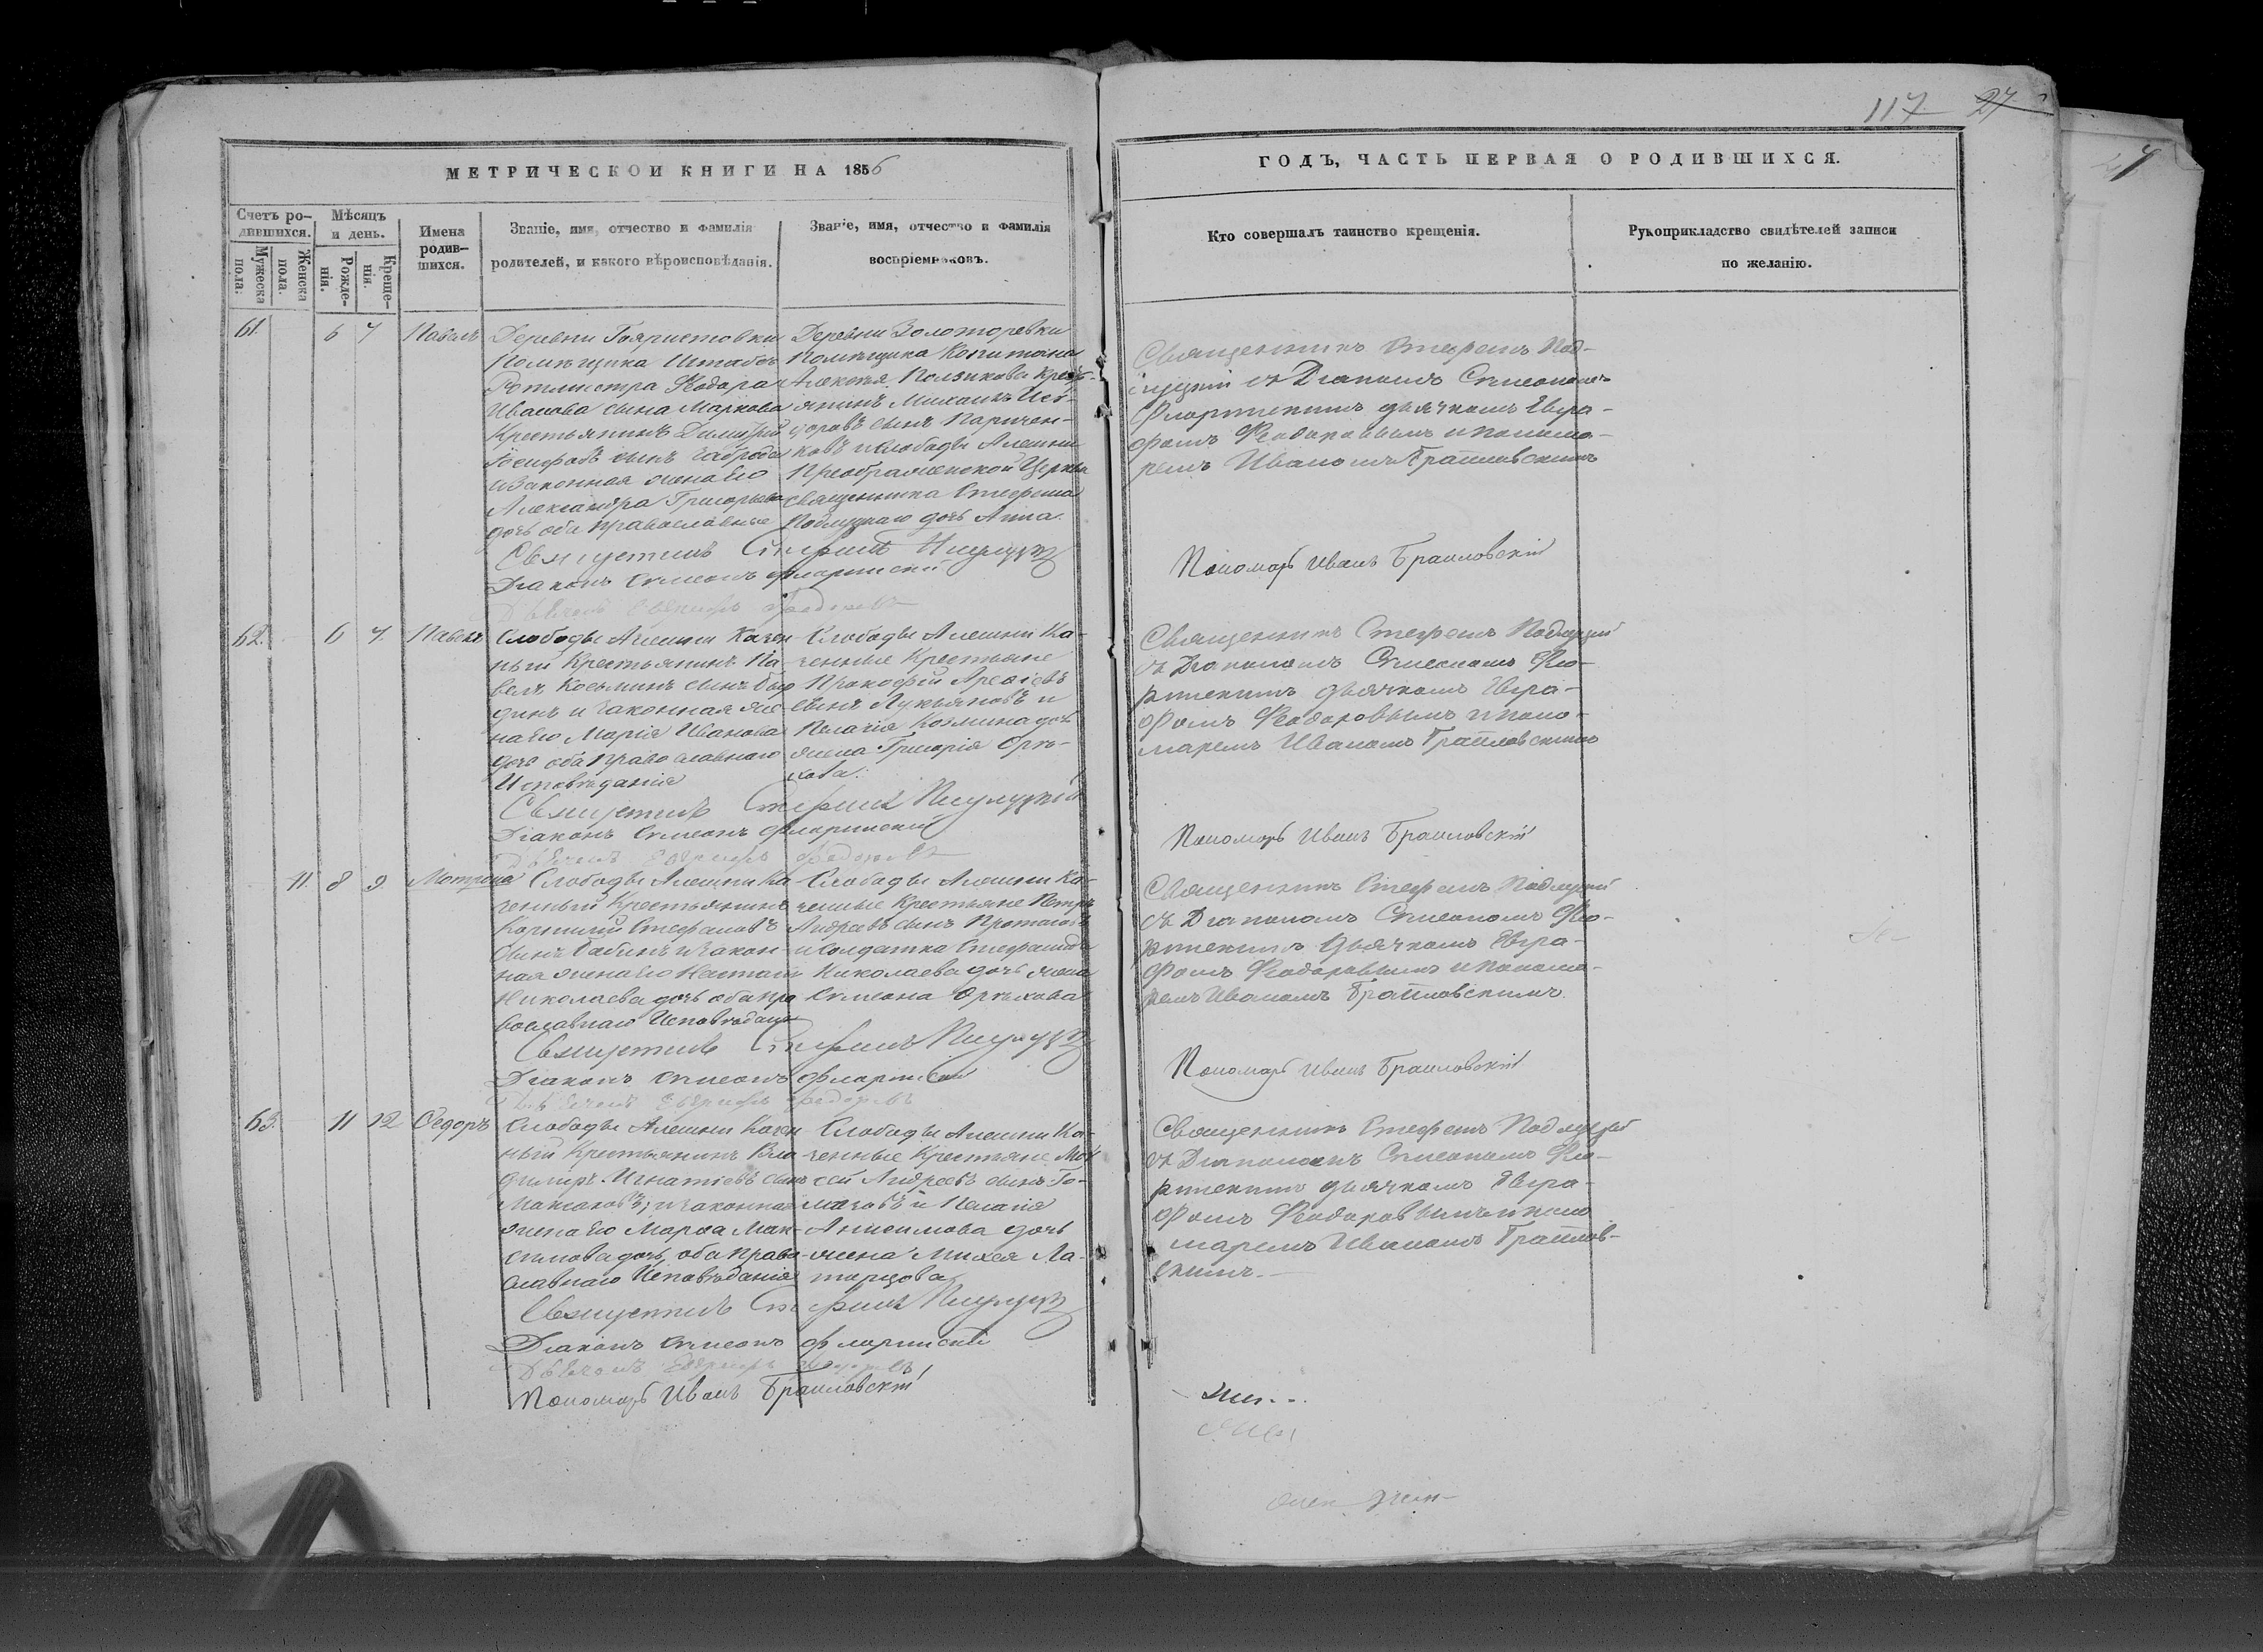 117 27
МЕТРИЧЕСКОЙ КНИГИ НА 1856
ГОДЪ, ЧАСТЬ ПЕРВАЯ О РОДИВШИХСЯ.
Счетъ ро-
дившихся.
Мужеска
пола.
Женска
пола.
Мѣсяцъ
и день.
Рожде-
нія.
Креще-
нія.
Имена
родив-
шихся.
Званіе, имя, отчество и фамилія
родителей, и какого вѣроисповѣданія.
Званіе, имя, отчество и фамилія
воспріемниковъ.
Кто совершалъ таинство крещенія.
Рукоприкладство свидѣтелей записи
по желанію.
61. 6 7 Павелъ
Деревни
Помѣщика Штабсъ
Ротмистра Ѳедора
Иванова сына Маркова
Крестьянинъ Димитрій
сынъ
и законная жена его
Александра Григорьева
дочь оба православные
Деревни Золоторевки
Помѣщика Капитана
Алексѣя Ползикова Крест-
янинъ Михаилъ
сынъ
и слободы Алешни
Преображенской Церкви
священника Стефана
Подлуцкаго дочь Анна.
Священникъ Стефанъ Под-
луцкій съ Діакономъ Симеономъ
Флоринскимъ дьячкомъ Евгра-
фомъ Ѳедоровымъ и понома-
ремъ Иваномъ Браиловскимъ
Священникъ Стефанъ Подлуцкій
Діаконъ Симеонъ Флоринскій
Дьячекъ Евграфъ Федоровъ
Пономарь Иванъ Браиловскій
62. 6 7. Павелъ
Слободы Алешни Казен
ный Крестьянинъ Па-
велъ Козьминъ сынъ
и законная же-
на его Марія Иванова
дочь оба православнаго
Исповѣданія
Слободы Алешни Ка-
зенные Крестьяне
Прокофій
сынъ Лукьяновъ и
Пелагія Козмина дочь
жена Григорія Орѣ-
хова.
Священникъ Стефанъ Подлуцкій
съ Діакономъ Симеономъ Фло-
ринскимъ дьячкомъ Евгра-
фомъ Ѳедоровымъ и поно-
маремъ Иваномъ Браиловскимъ
Священникъ Стефанъ Подлуцкій
Діаконъ Симеонъ Флоринскій
Дьячекъ Евграфъ Федоровъ
Пономарь Иванъ Браиловскій
11. 8 9. Матрона
Слободы Алешни Ка-
зенный Крестьянинъ
Корнилій Стефановъ
сынъ Бабинъ и закон-
ная жена его
Николаева дочь оба пра
вославнаго Исповѣданія
Слободы Алешни Ка-
зенные Крестьяне Петръ
Андреевъ сынъ
и солдатка Стефанида
Николаева дочь жена
Симеона Орѣхова
Священникъ Стефанъ Подлуцкій
съ Діакономъ Симеономъ Фло-
ринскимъ дьячкомъ Евгра-
фомъ Ѳедоровымъ и понома-
ремъ Иваномъ Браиловскимъ.
Священникъ Стефанъ Подлуцкій
Діаконъ Симеонъ Флоринскій
Дьячекъ Евграфъ Федоровъ
Пономарь Иванъ Браиловскій
63. 11 12 Ѳедоръ
Слободы Алешни Казен
ный Крестьянинъ Вла-
димиръ Игнатіевъ сынъ
и законная
жена его Марѳа Мак-
симова дочь, оба право-
славнаго Исповѣданія
Слободы Алешни Ка-
зенные Крестьяне Мои
сей Андреевъ сынъ
и Пелагія
Анисимова дочь
жена Михея Ла-
Священникъ Стефанъ Подлуцкій
съ Діакономъ Симеономъ Фло-
ринскимъ дьячкомъ Евгра-
фомъ Ѳедоровымъ и поно
маремъ Иваномъ Браилов-
скимъ.
Священникъ Стефанъ Подлуцкій
Діаконъ Симеонъ Флоринскій
Дьячекъ Евграфъ Федоровъ
Пономарь Иванъ Браиловскій